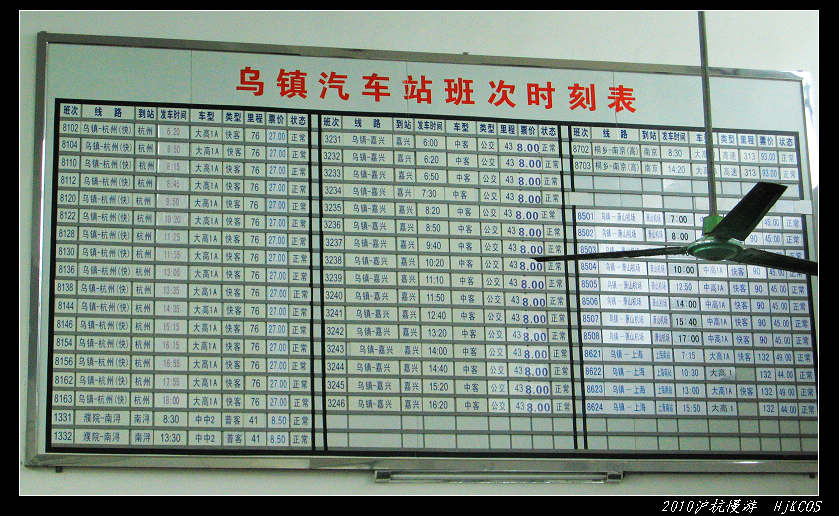 乌镇汽车站班次时刻表
班次 线路 到站 发车时间 车型 类型 里程 票价 状态
8102 乌镇-杭州(快) 杭州 6:20 大高1A 快客 76 27.00 正常
8104 乌镇-杭州(快) 杭州 6:50 大高1A 快客 76 27.00 正常
8110 乌镇-杭州(快) 杭州 8:15 大高1A 快客 76 27.00 正常
8112 乌镇-杭州(快) 杭州 8:45 大高1A 快客 76 27.00 正常
8120 乌镇-杭州(快) 杭州 9:50 大高1A 快客 76 27.00 正常
8122 乌镇-杭州(快) 杭州 10:20 大高1A 快客 76 27.00 正常
8128 乌镇-杭州(快) 杭州 11:25 大高1A 快客 76 27.00 正常
8130 乌镇-杭州(快) 杭州 11:35 大高1A 快客 76 27.00 正常
8136 乌镇-杭州(快) 杭州 13:05 大高1A 快客 76 27.00 正常
8138 乌镇-杭州(快) 杭州 13:35 大高1A 快客 76 27.00 正常
8144 乌镇-杭州(快) 杭州 14:35 大高1A 快客 76 27.00 正常
8146 乌镇-杭州(快) 杭州 15:15 大高1A 快客 76 27.00 正常
8154 乌镇-杭州(快) 杭州 16:15 大高1A 快客 76 27.00 正常
8156 乌镇-杭州(快) 杭州 16:55 大高1A 快客 76 27.00 正常
8162 乌镇-杭州(快) 杭州 17:55 大高1A 快客 76 27.00 正常
8163 乌镇-杭州(快) 杭州 18:00 大高1A 快客 76 27.00 正常
1331 濮院-南浔 南浔 8:30 中中2 普客 41 8.50 正常
1332 濮院-南浔 南浔 13:30 中中2 普客 41 8.50 正常
班次 线路 到站 发车时间 车型 类型 里程 票价 状态
3231 乌镇-嘉兴 嘉兴 6:00 中客 公交 43 8.00 正常
3232 乌镇-嘉兴 嘉兴 6:20 中客 公交 43 8.00 正常
3233 乌镇-嘉兴 嘉兴 6:50 中客 公交 43 8.00 正常
3234 乌镇-嘉兴 嘉兴 7:30 中客 公交 43 8.00 正常
3235 乌镇-嘉兴 嘉兴 8:20 中客 公交 43 8.00 正常
3236 乌镇-嘉兴 嘉兴 8:50 中客 公交 43 8.00 正常
3237 乌镇-嘉兴 嘉兴 9:40 中客 公交 43 8.00 正常
3238 乌镇-嘉兴 嘉兴 10:20 中客 公交 43 8.00 正常
3239 乌镇-嘉兴 嘉兴 11:10 中客 公交 43 8.00 正常
3240 乌镇-嘉兴 嘉兴 11:50 中客 公交 43 8.00 正常
3241 乌镇-嘉兴 嘉兴 12:40 中客 公交 43 8.00 正常
3242 乌镇-嘉兴 嘉兴 13:20 中客 公交 43 8.00 正常
3243 乌镇-嘉兴 嘉兴 14:00 中客 公交 43 8.00 正常
3244 乌镇-嘉兴 嘉兴 14:40 中客 公交 43 8.00 正常
3245 乌镇-嘉兴 嘉兴 15:20 中客 公交 43 8.00 正常
3246 乌镇-嘉兴 嘉兴 16:20 中客 公交 43 8.00 正常
班次 线路 到站 发车时间 车型 类型 里程 票价 状态
8702 桐乡-南京(高) 南京 8:30 大高 高速 313 93.00 正常
8703 桐乡-南京(高) 南京 14:20 大高 高速 313 93.00 正常
8501 乌镇-萧山机场 萧山机场 7:00 45.00 正常
8502 乌镇-萧山机场 萧山机场 8:00 90 45.00 正常
8503 乌镇-萧山机场 45.00 正常
8504 乌镇-萧山机场 萧山机场 10:00 中高1A 快客 90 45.00 正常
8505 乌镇-萧山机场 萧山机场 12:50 中高1A 快客 90 45.00 正常
8506 乌镇-萧山机场 萧山机场 14:00 中高1A 快客 90 45.00 正常
8507 乌镇-萧山机场 萧山机场 15:40 中高1A 快客 90 45.00 正常
8508 乌镇-萧山机场 萧山机场 17:00 中高1A 快客 90 45.00 正常
8621 乌镇-上海 上海南站 7:15 大高1A 快客 132 49.00 正常
8622 乌镇-上海 上海南站 10:30 大高1 132 44.00 正常
8623 乌镇-上海 上海南站 13:00 大高1A 快客 132 49.00 正常
8624 乌镇-上海 上海南站 15:50 大高1 132 44.00 正常
2010沪杭慢游 HjKCOS